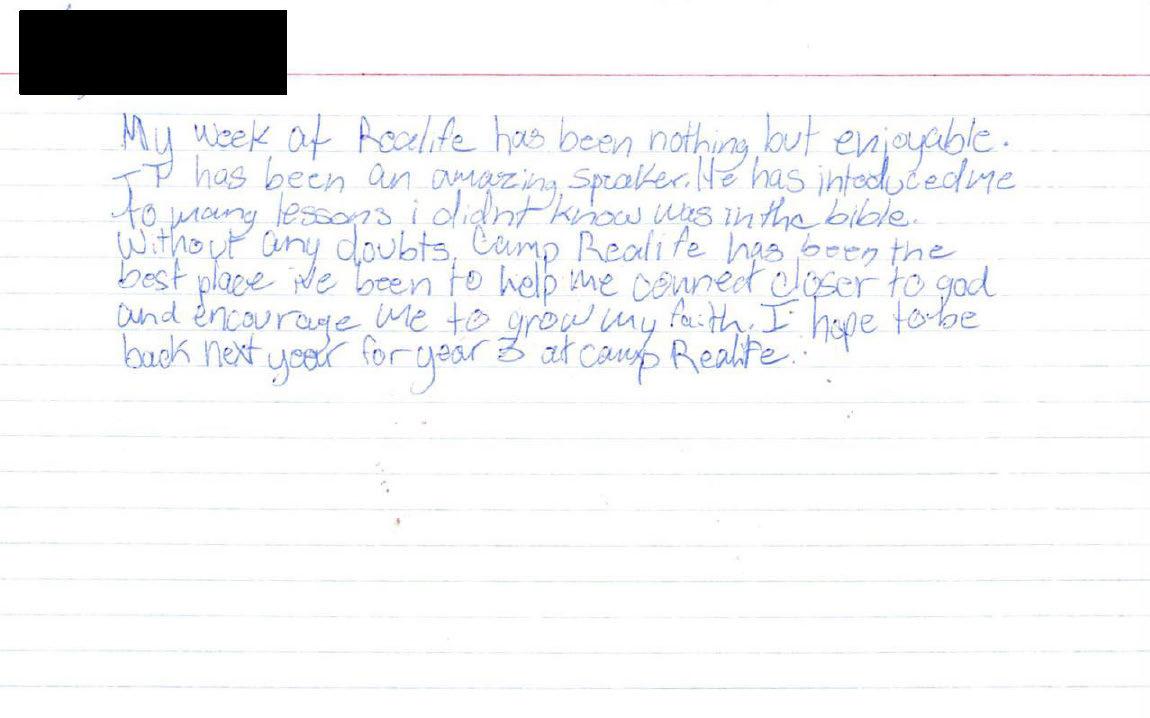 My week at Realife has been nothing but enjoyable.
JP has been an amazing speaker. He has intoduced me
to many lessons i didnt know was in the bible.
Without any doubts, Camp Realife has been the
best place i've been to help me connect closer to god
and encourage me to grow my faith. I hope to be
back next year for year 3 at camp Realife.